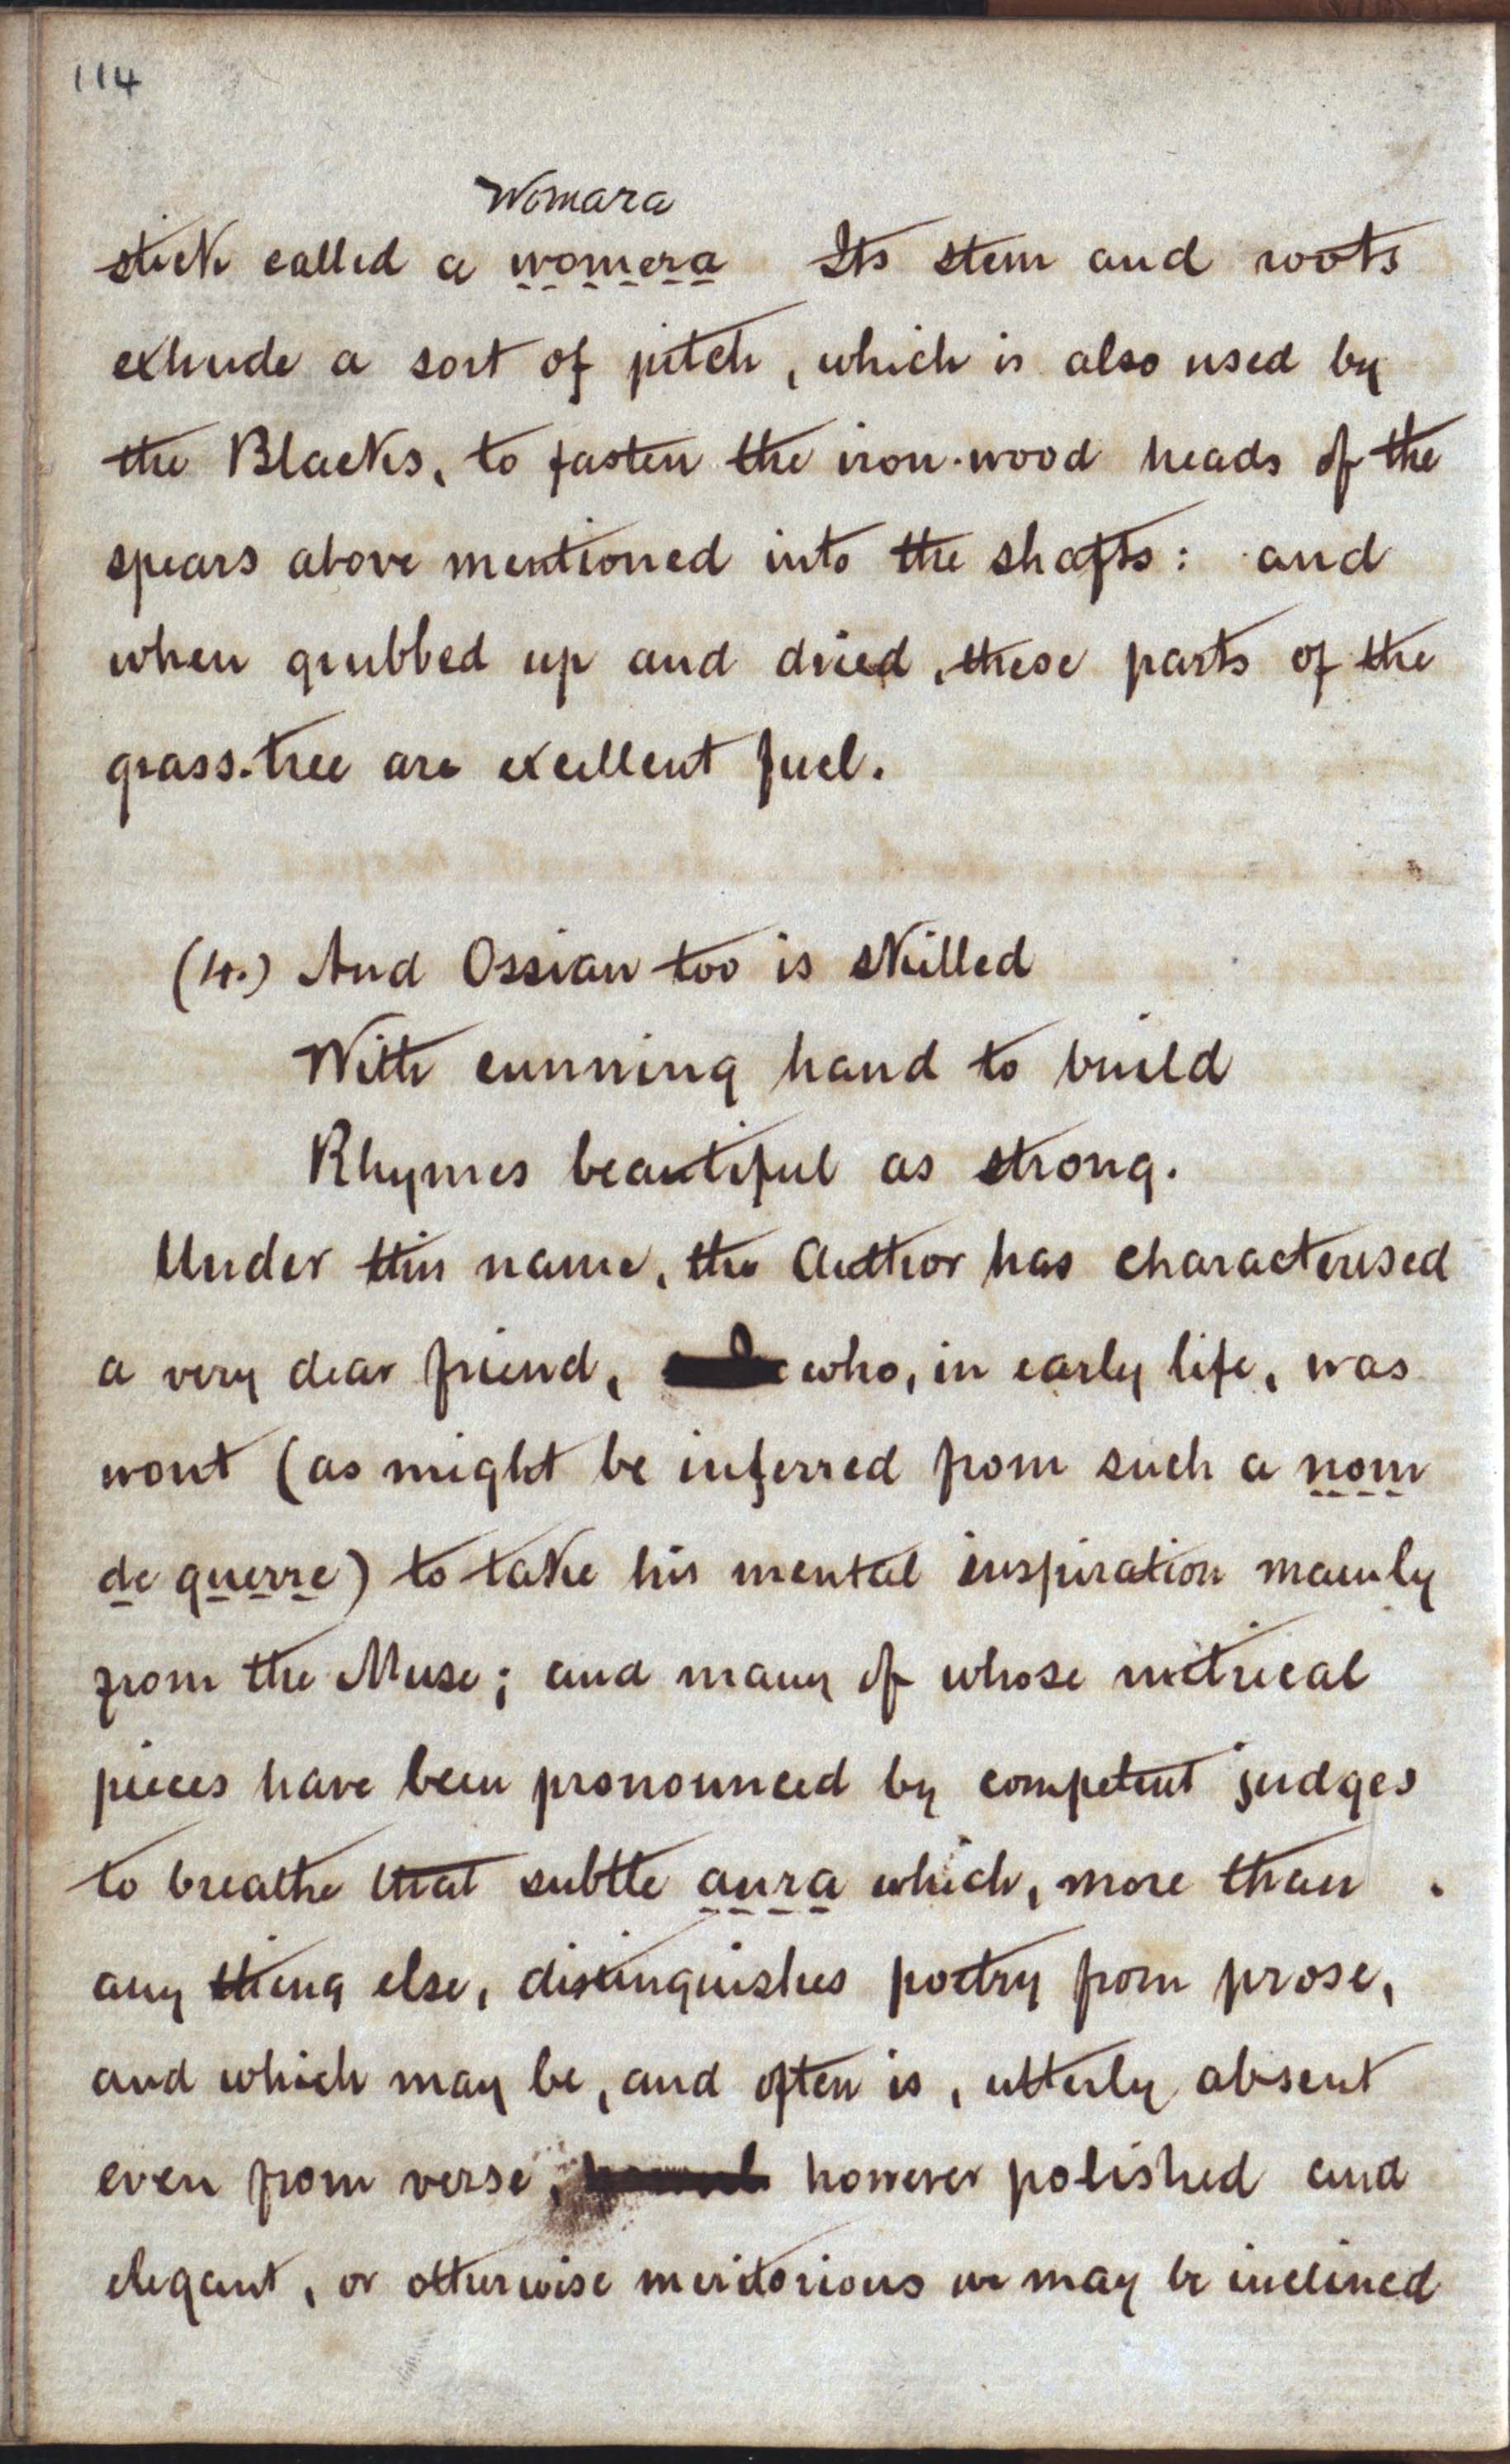 114
Womara
stick called a womera Its stem and roots
exhude a sort of pitch, which is also used by
the Blacks, to fasten the iron-wood heads of the
spears above mentioned into the shafts: and
when grubbed up and dried, these parts of the
grass-tree are excellent fuel.
(4.) And Ossian too is skilled
With cunning hand to build
Rhymes beautiful as strong.
Under this name, the Author has characterised
a very dear friend, who, in early life, was
wont (as might be inferred from such a nom
de guerre) to take his mental inspiration mainly
from the Muse; and many of whose metrical
pieces have been pronounced by competent judges
to breathe that subtle aura which, more than
any thing else, distinguishes poetry from prose,
and which may be, and often is, utterly absent
even from verse, however polished and
elegant, or otherwise meritorious we may be inclined